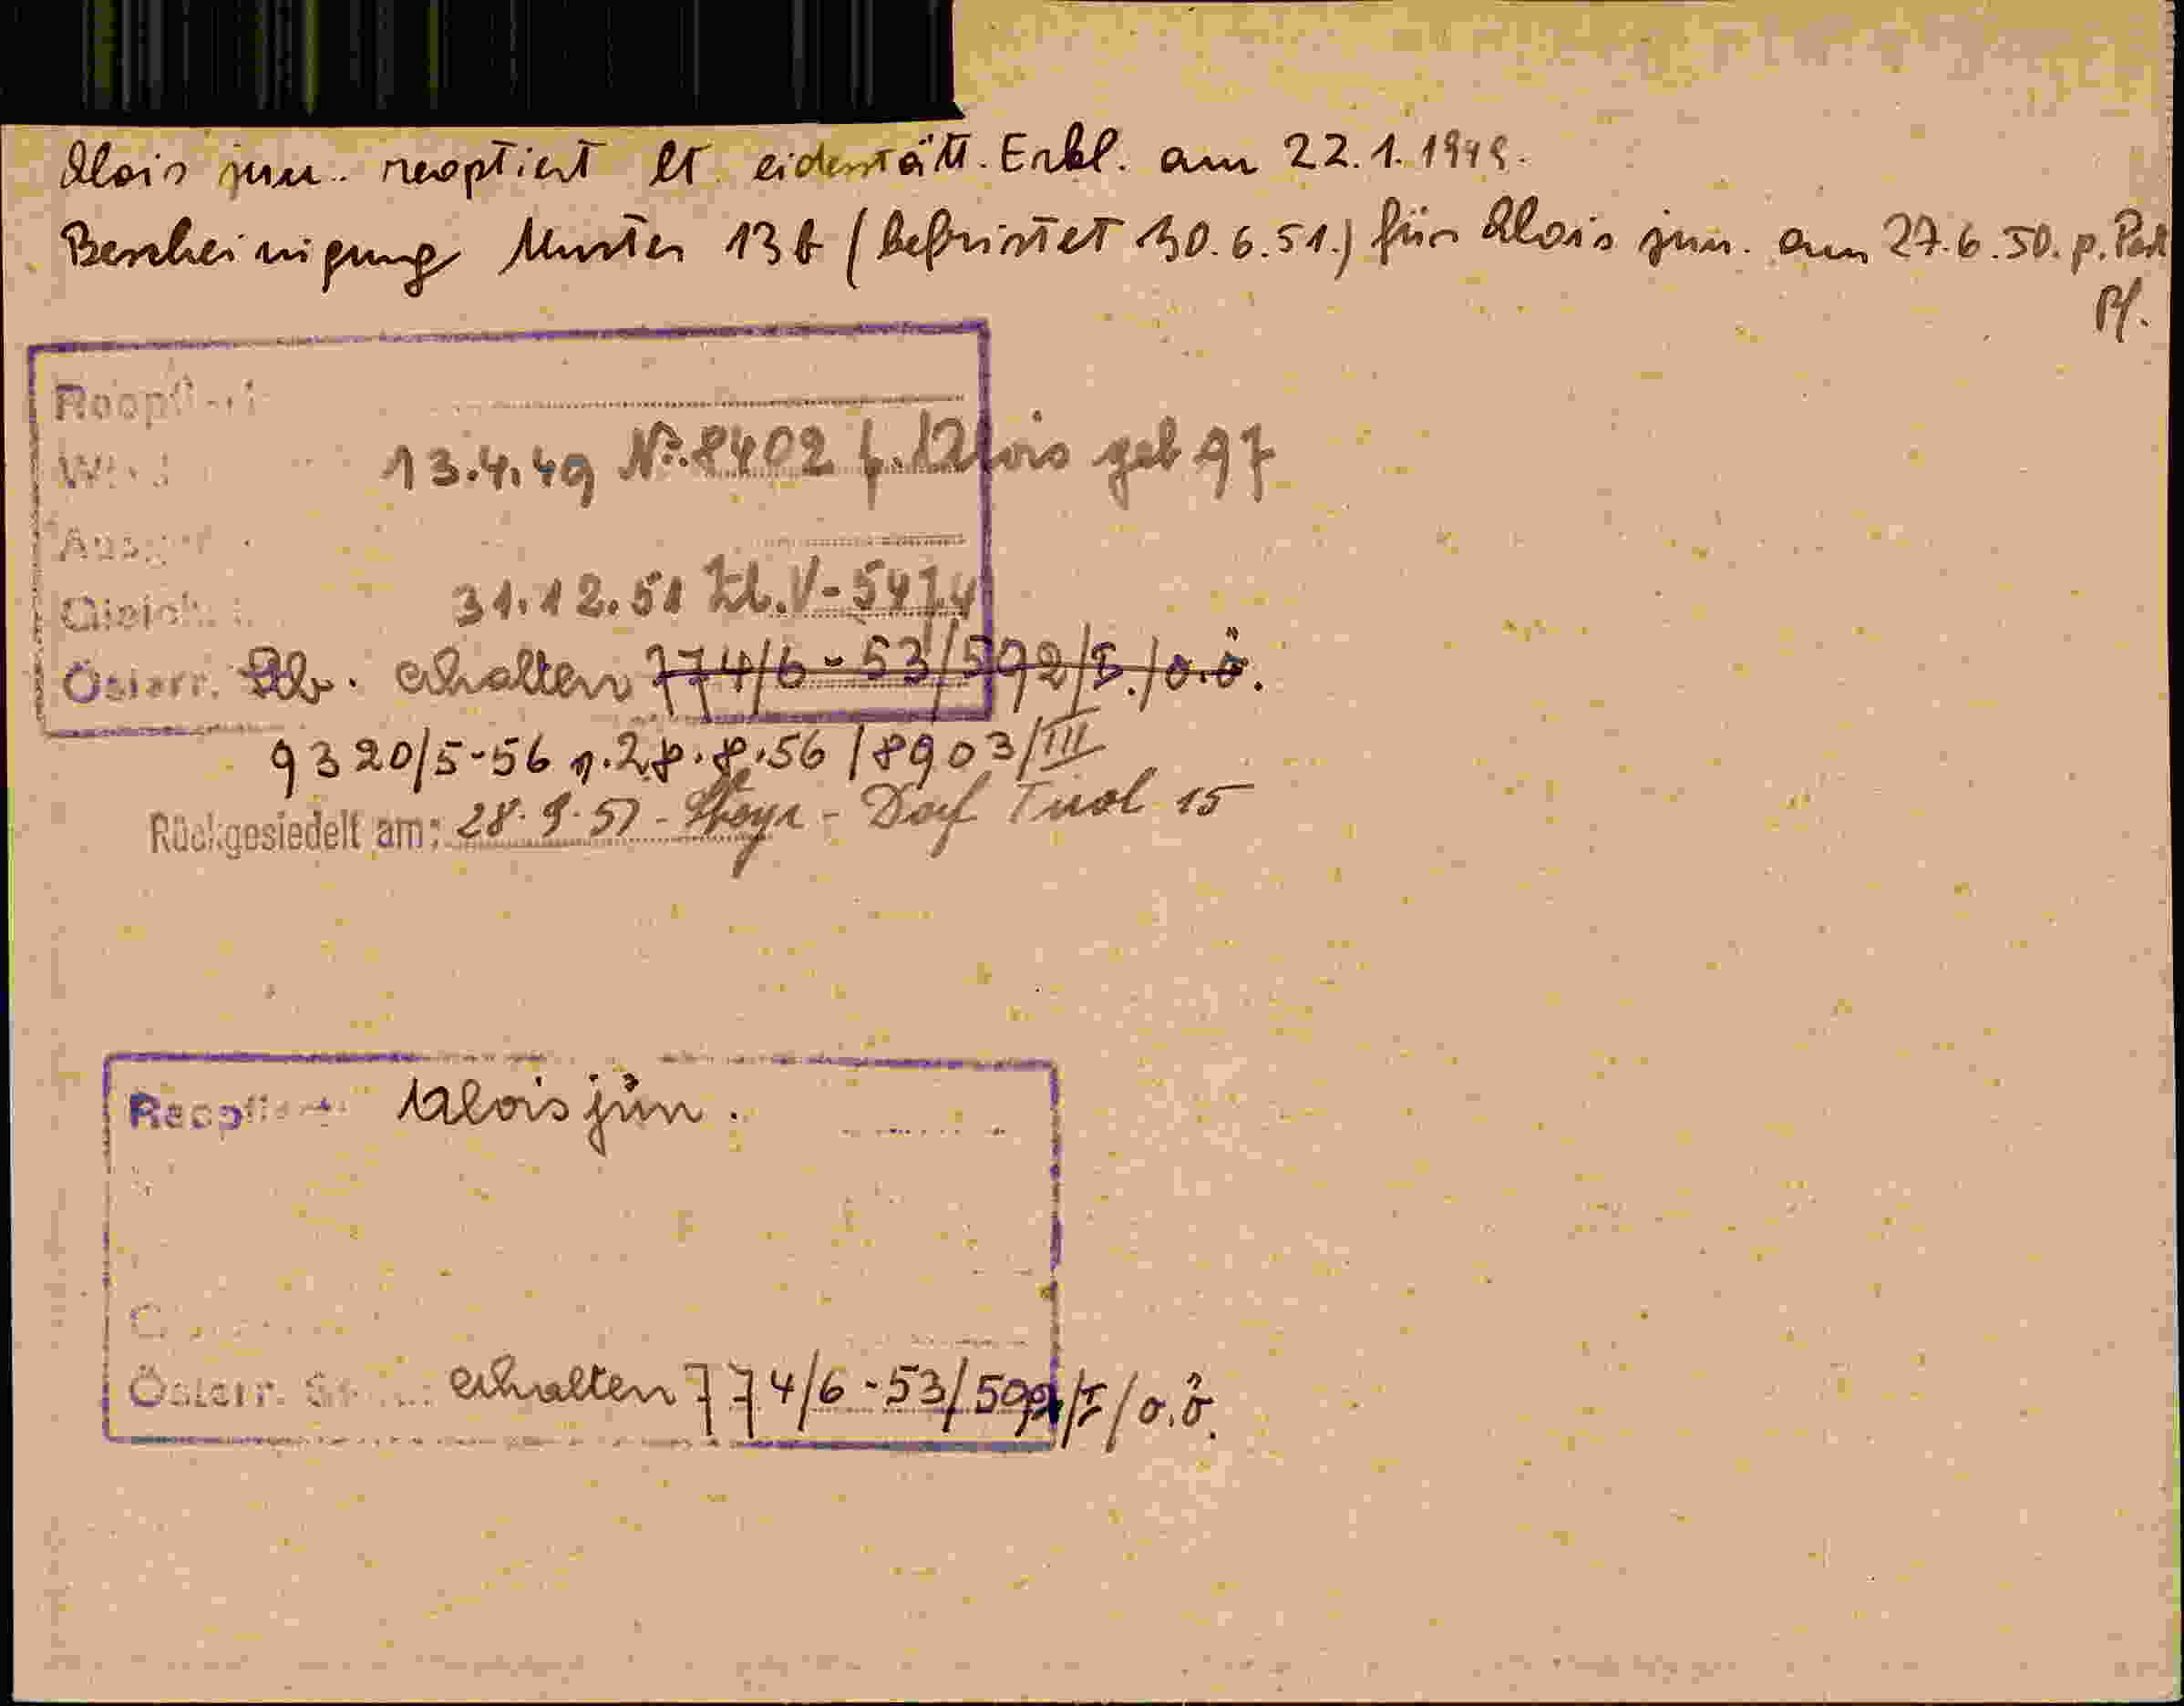 Alois jun. reoptiert lt. eidesstätt. Erkl. am 22.1.1949.
Bescheinigung Muster 13b (befristet 30.6.51.) für Alois jun. am 27.6.50. p. Post
Pf.
Reoptiert
13.4.49 Nr. 8402 f. Alois geb 97
31.12.51 Zl. V-5474
Österr. Stb. erhalten 774/6-53/592/I./o.ö.
9320/5-56 v. 28.8.56 /8903/III
Rückgesiedelt am: 28.9.57 - Steyr - Dorf Tirol 15
Reoptiert Alois jun.
Österr. erhalten 774/6-53/592/I/o.ö.